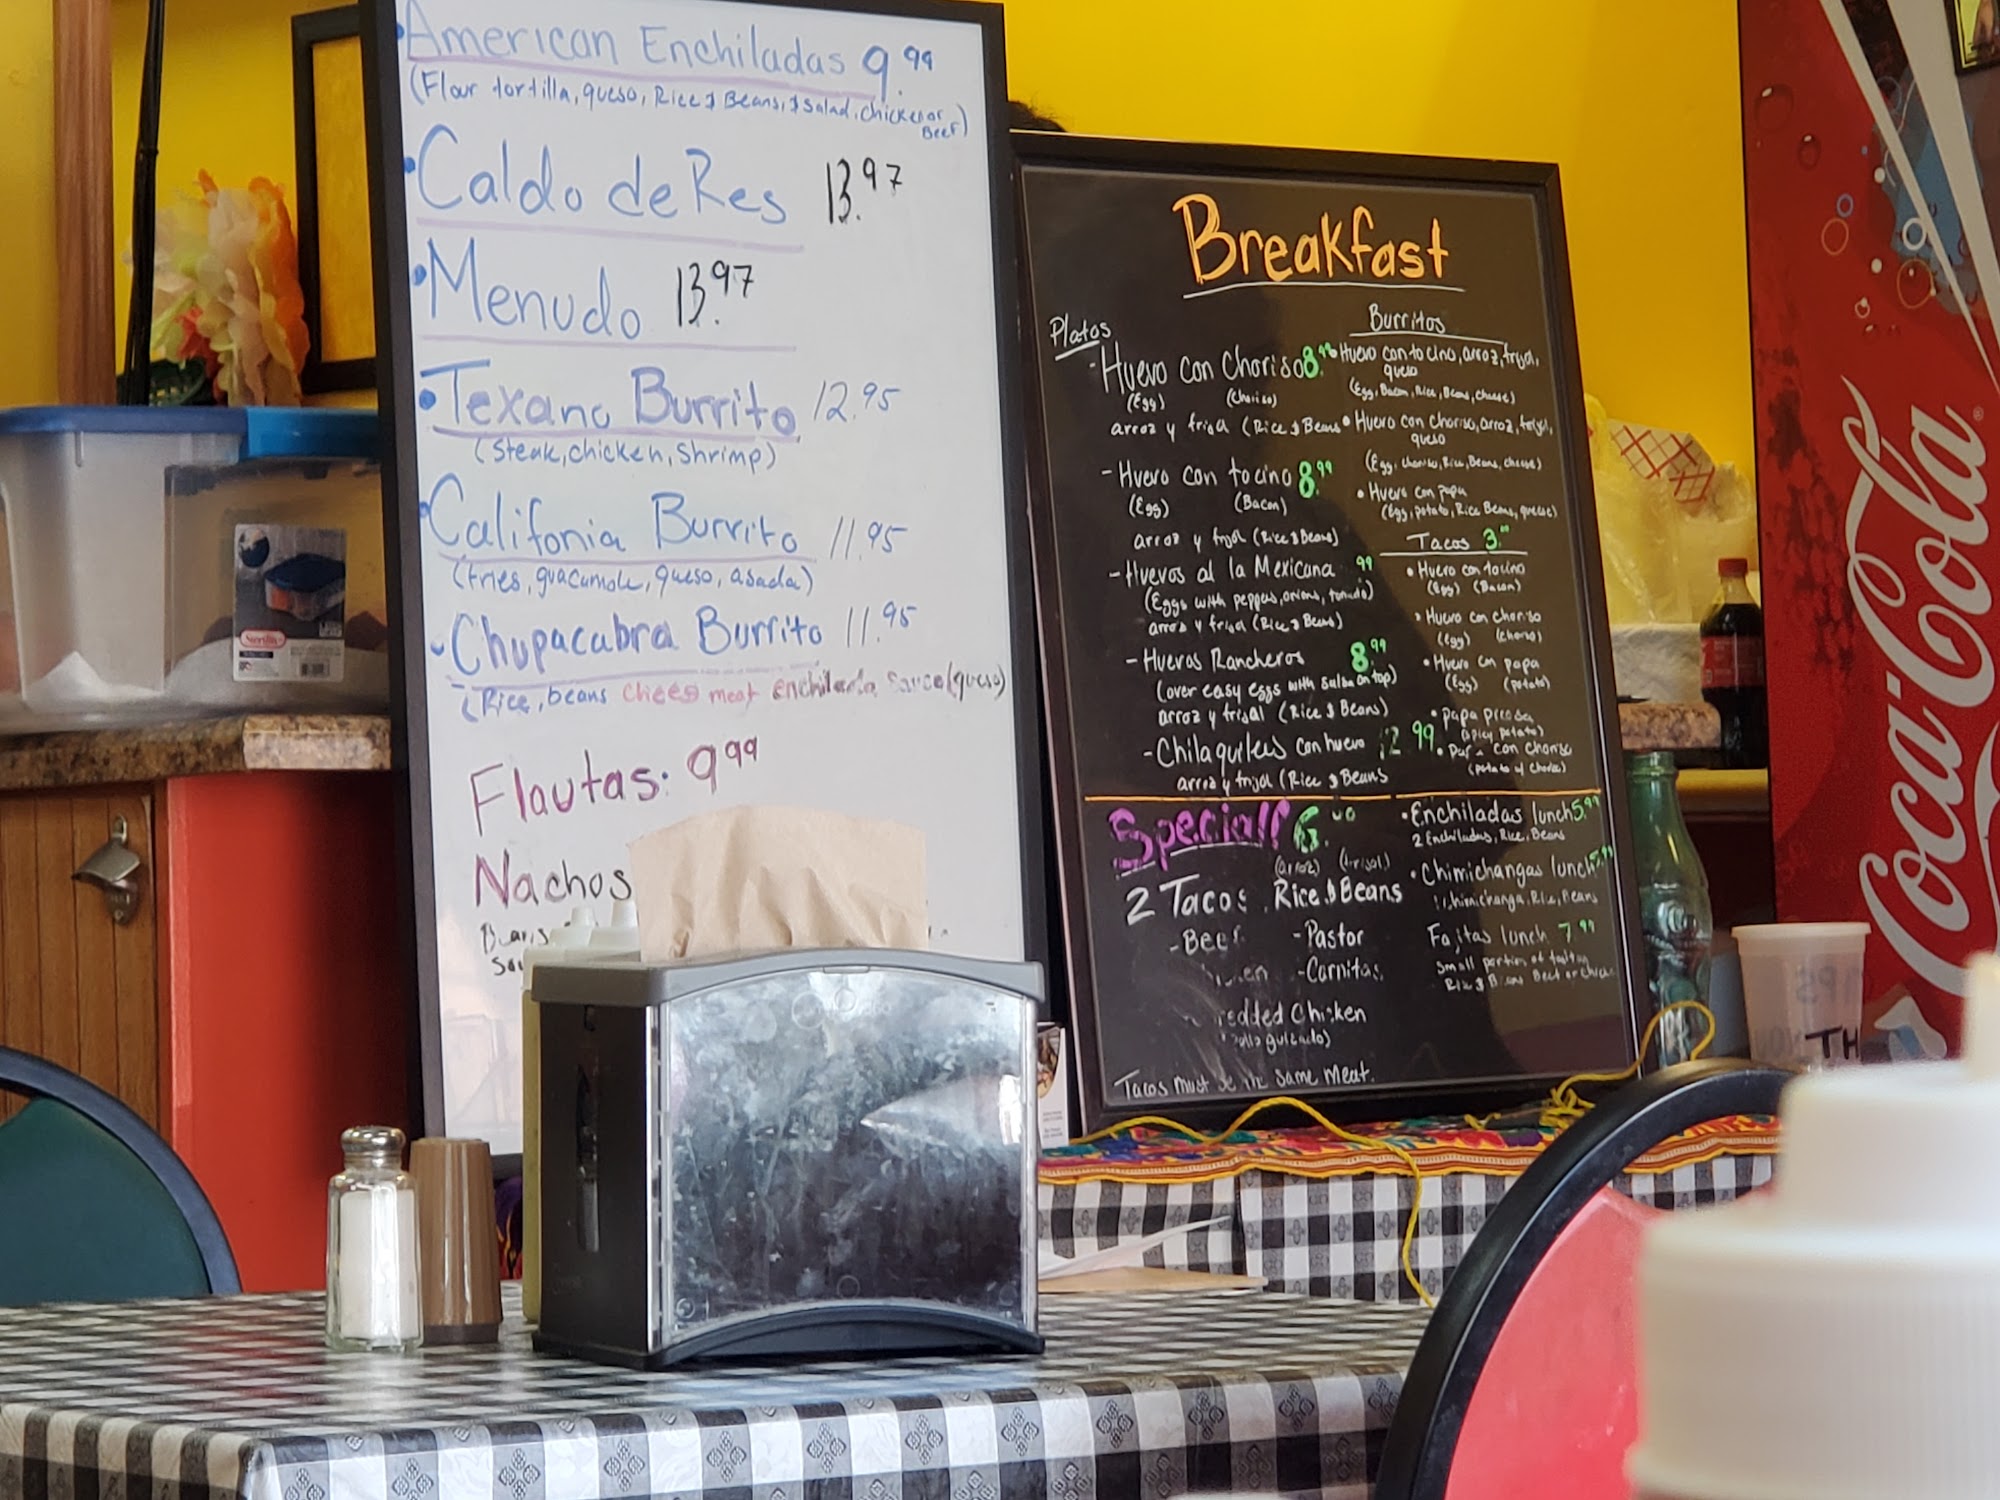 •American Enchiladas 9.99
(Flour tortilla, queso, Rice & Beans, & Salad, chicken or
Beef)
•Caldo de Res 13.97
•Menudo 13.97
•Texano Burrito 12.95
(steak, chicken, shrimp)
•Califonia Burrito 11.95
(fries, guacamole, queso, asada)
•Chupacabra Burrito 11.95
(Rice, beans chees meat enchilada sauce (queso)
Flautas: 9.99
Nachos
Breakfast
Platos
-Huevo con Choriso 8.99
(Egg) (Choriso)
arroz y frijol (Rice & Beans
-Huevo con tocino 8.99
(Egg) (Bacon)
arroz y frijol (Rice & Beans)
-Huevos al la Mexicana 99
(Eggs with peppers, onions, tomato)
arroz y frijol (Rice & Beans)
-Huevos Rancheros 8.99
(over easy eggs with salsa on top)
arroz y frijol (Rice & Beans)
-Chilaquiles con huevo 12.99
arroz y frijol (Rice & Beans
Burritos
• Huevo con tocino, arroz, frijol,
queso
(Egg, Bacon, Rice, Beans, cheese)
• Huevo con choriso, arroz, frijol,
queso
(Egg, choriso, Rice, Beans, cheese)
• Huevo con papa
(Egg, potato, Rice Beans, queso)
Tacos 3.00
• Huevo con tocino
(Egg) (Bacon)
• Huevo con choriso
(Egg) (choriso)
• Huevo con papa
(Egg) (potato)
• papa picosa
(spicy potato)
• con choriso
(potato w/ choriso)
Special! 6.00
(arroz) (frijol)
2 Tacos Rice & Beans
-Beef -Pastor
-Carnitas
Chicken
guizado)
Tacos must same meat.
•Enchiladas lunch 5.99
2 Enchiladas, Rice, Beans
•Chimichangas lunch 5.99
1 chimichanga, Rice, Beans
Fajitas lunch 7.99
Small portion of fajitas
Rice & Beans Beef or
Coca-Cola
®
TH